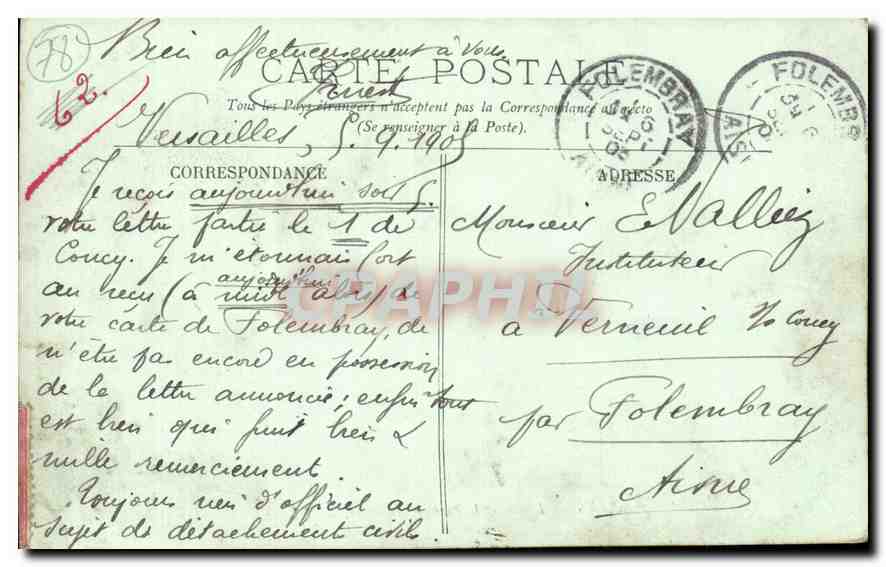 78
62.
Bien affectueusement à vous
Ernest
CARTE POSTALE
Tous les Pays étrangers n'acceptent pas la Correspondance au recto
(Se renseigner à la Poste).
Versailles, 5.9.1905
CORRESPONDANCE
Je reçois aujourd'hui soir 5.
votre lettre partie le 1 de
Coucy. Je m'étonnais fort
aujourd'hui
au reçu (à midi alors) de
votre carte de Folembray, de
n'être pas encore en possession
de la lettre annoncée ; enfin tout
est bien qui finit bien &
mille remerciement
Toujours rien d'officiel au
sujet de détachement civil
ADRESSE
Monsieur E. Valliez
Instituteur
à Verneuil s/s Coucy
par Folembray
Aisne
FOLEMBRAY
6
SEPT
05
AISNE
FOLEMBR
6
05
AIS
CPAPHIL